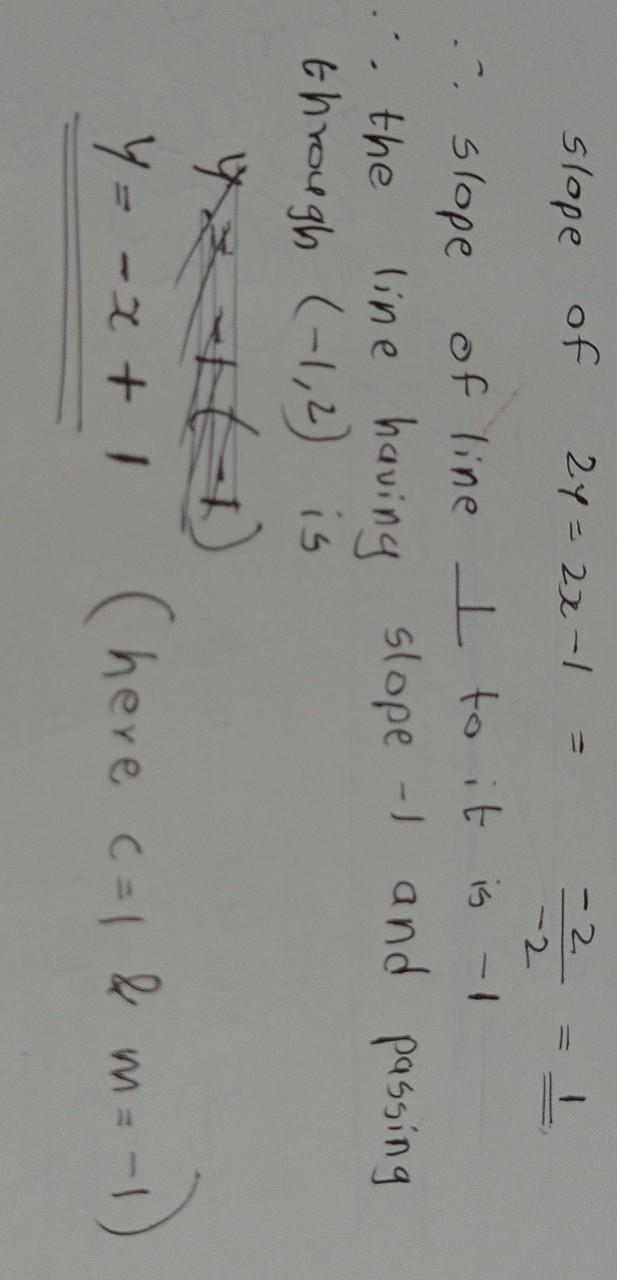 slope of 2y = 2x - 1 = -2/-2 = 1
∴ slope of line ⊥ to it is -1
∴ the line having slope -1 and passing
through (-1,2) is
y = -x + 1 (here c = 1 & m = -1)